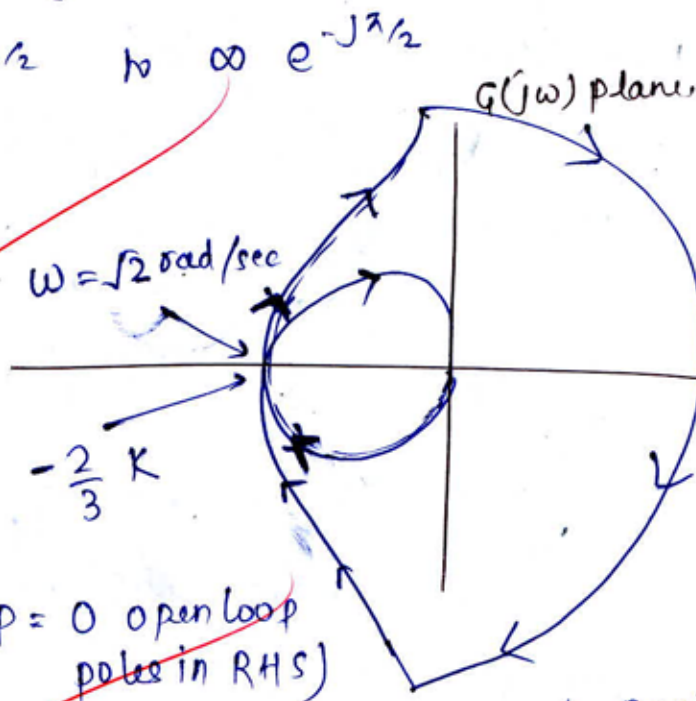 /2 to ∞ e^-jπ/2
G(jω) plane.
ω = √2 rad/sec
- 2/3 K
P = 0 open loop
poles in RHS)